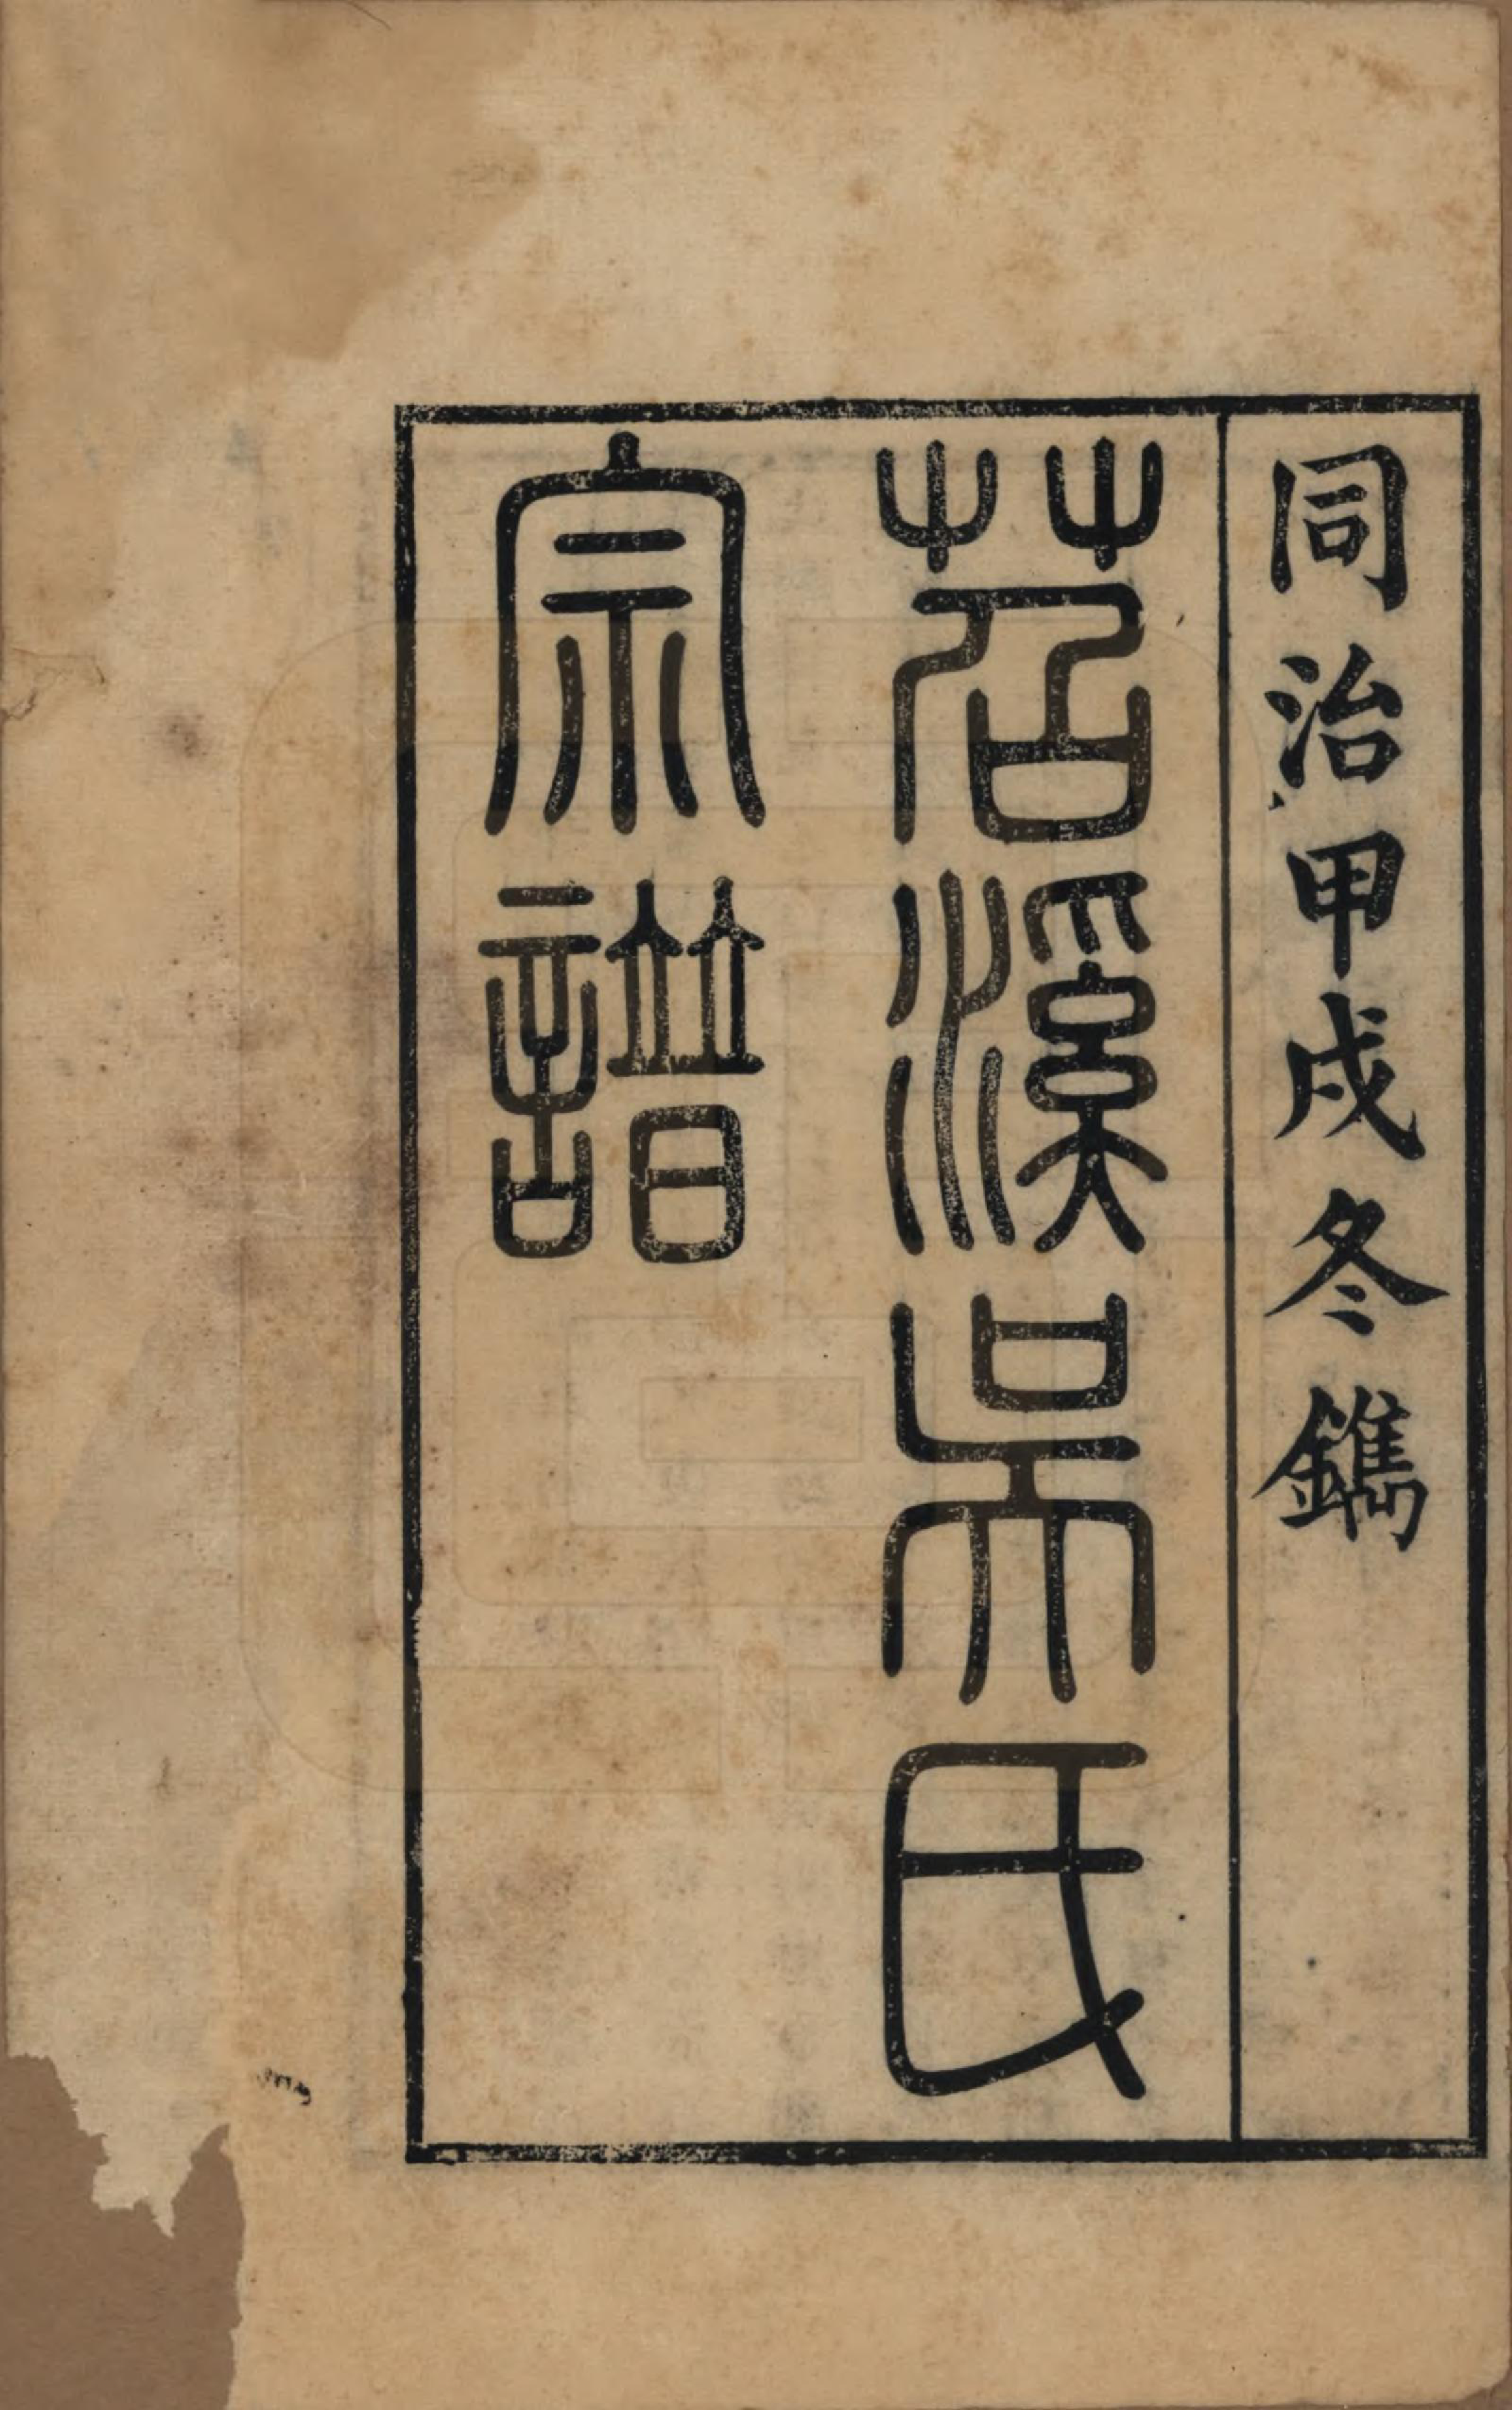 同治甲戌冬鐫
茗溪吳氏
宗譜